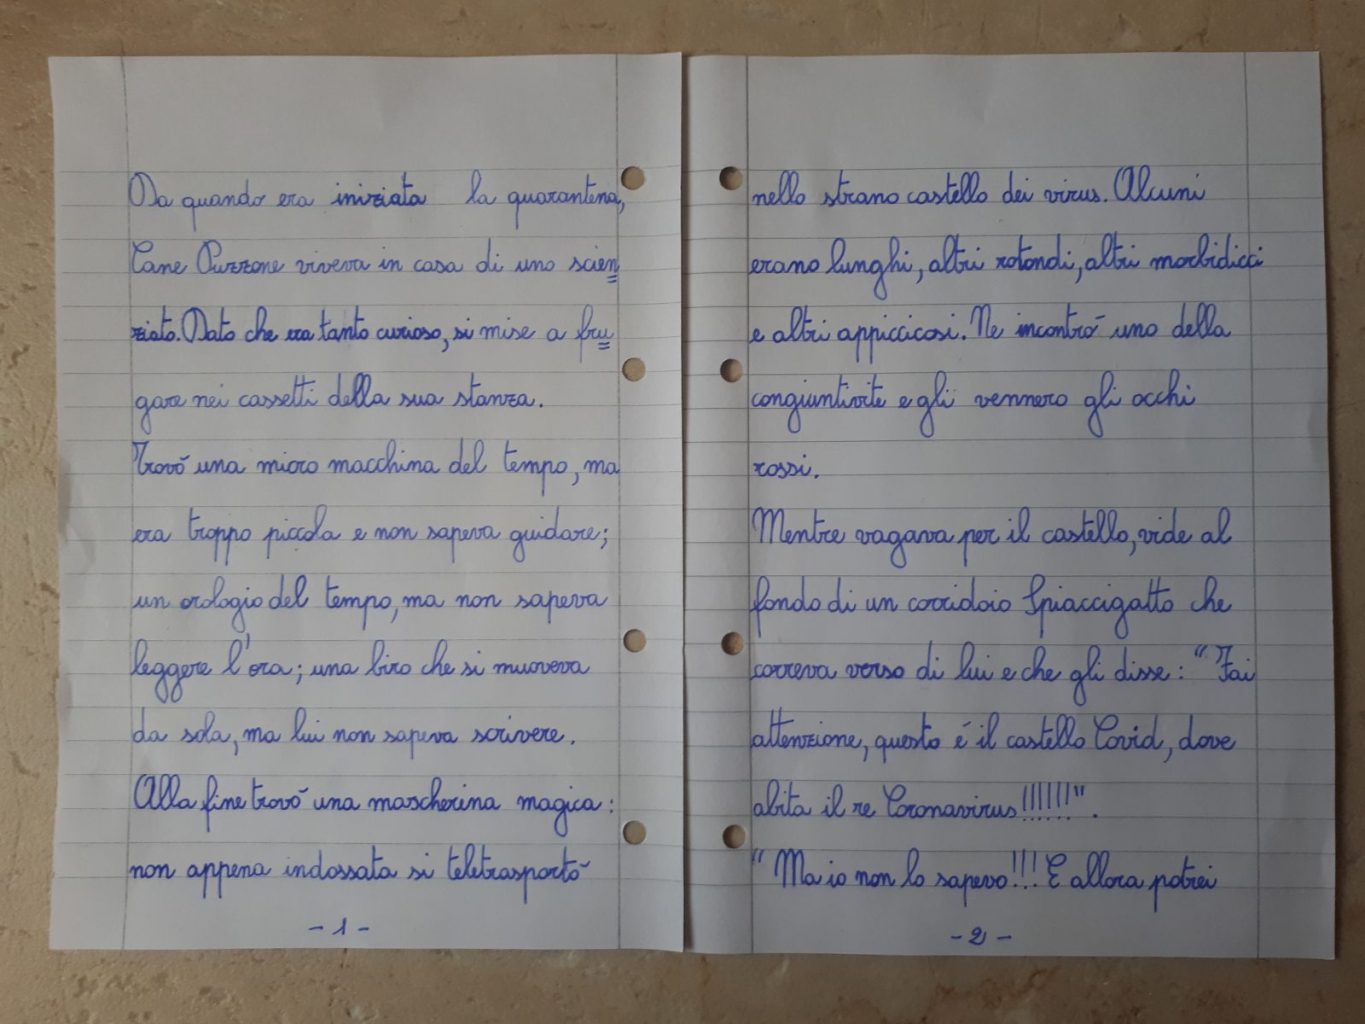 Da quando era iniziata la quarantena,
Cane Puzzone viveva in casa di uno scien
ziato. Dato che era tanto curioso, si mise a fru
gare nei cassetti della sua stanza.
Trovò una micro macchina del tempo, ma
era troppo piccola e non sapeva guidare;
un orologio del tempo, ma non sapeva
leggere l'ora; una biro che si muoveva
da sola, ma lui non sapeva scrivere.
Alla fine trovò una mascherina magica:
non appena indossata si teletrasportò
- 1 -
nello strano castello dei virus. Alcuni
erano lunghi, altri rotondi, altri morbidicci
e altri appiccicosi. Ne incontrò uno della
congiuntivite e gli vennero gli occhi
rossi.
Mentre vagava per il castello, vide al
fondo di un corridoio Spiaccigatto che
correva verso di lui e che gli disse: "Fai
attenzione, questo é il castello Covid, dove
abita il re Coronavirus!!!!!!".
"Ma io non lo sapevo!!! E allora potrei
- 2 -